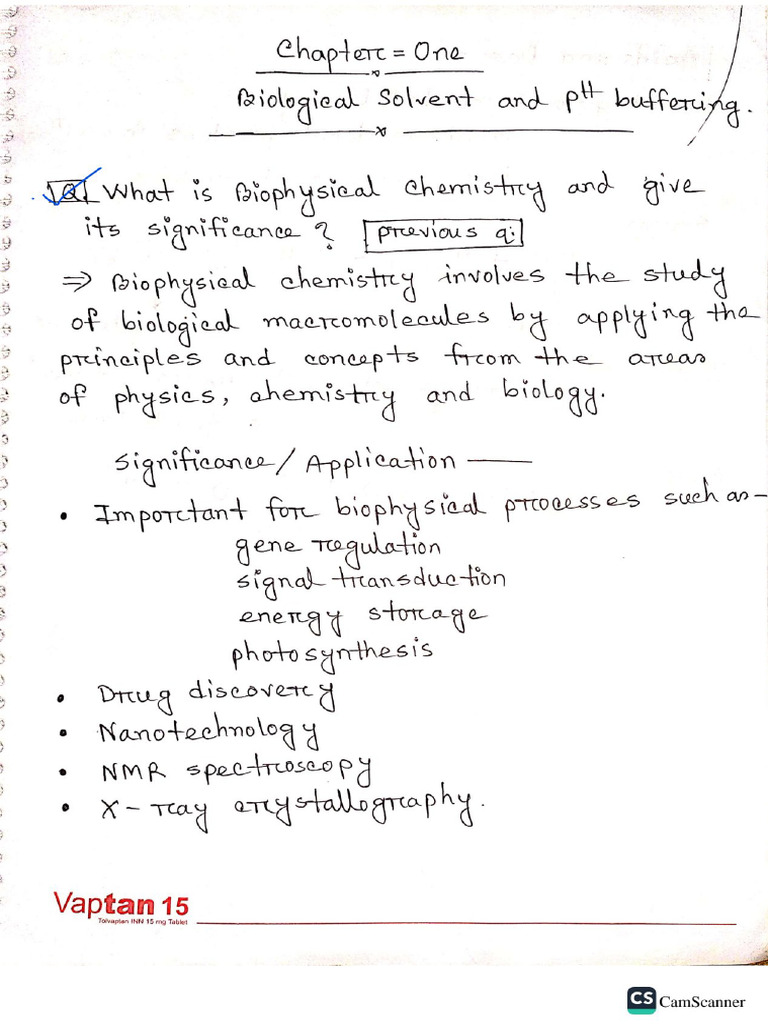 Chapter = One
Biological Solvent and pH buffering.
Q What is Biophysical chemistry and give
its significance? previous q:
⇒ Biophysical chemistry involves the study
of biological macromolecules by applying the
principles and concepts from the areas
of physics, chemistry and biology.
Significance/Application —
• Important for biophysical processes such as-
gene regulation
signal transduction
energy storage
photosynthesis
• Drug discovery
• Nanotechnology
• NMR spectroscopy
• X-ray crystallography.
Vaptan 15
Tolvaptan INN 15 mg Tablet
CS CamScanner